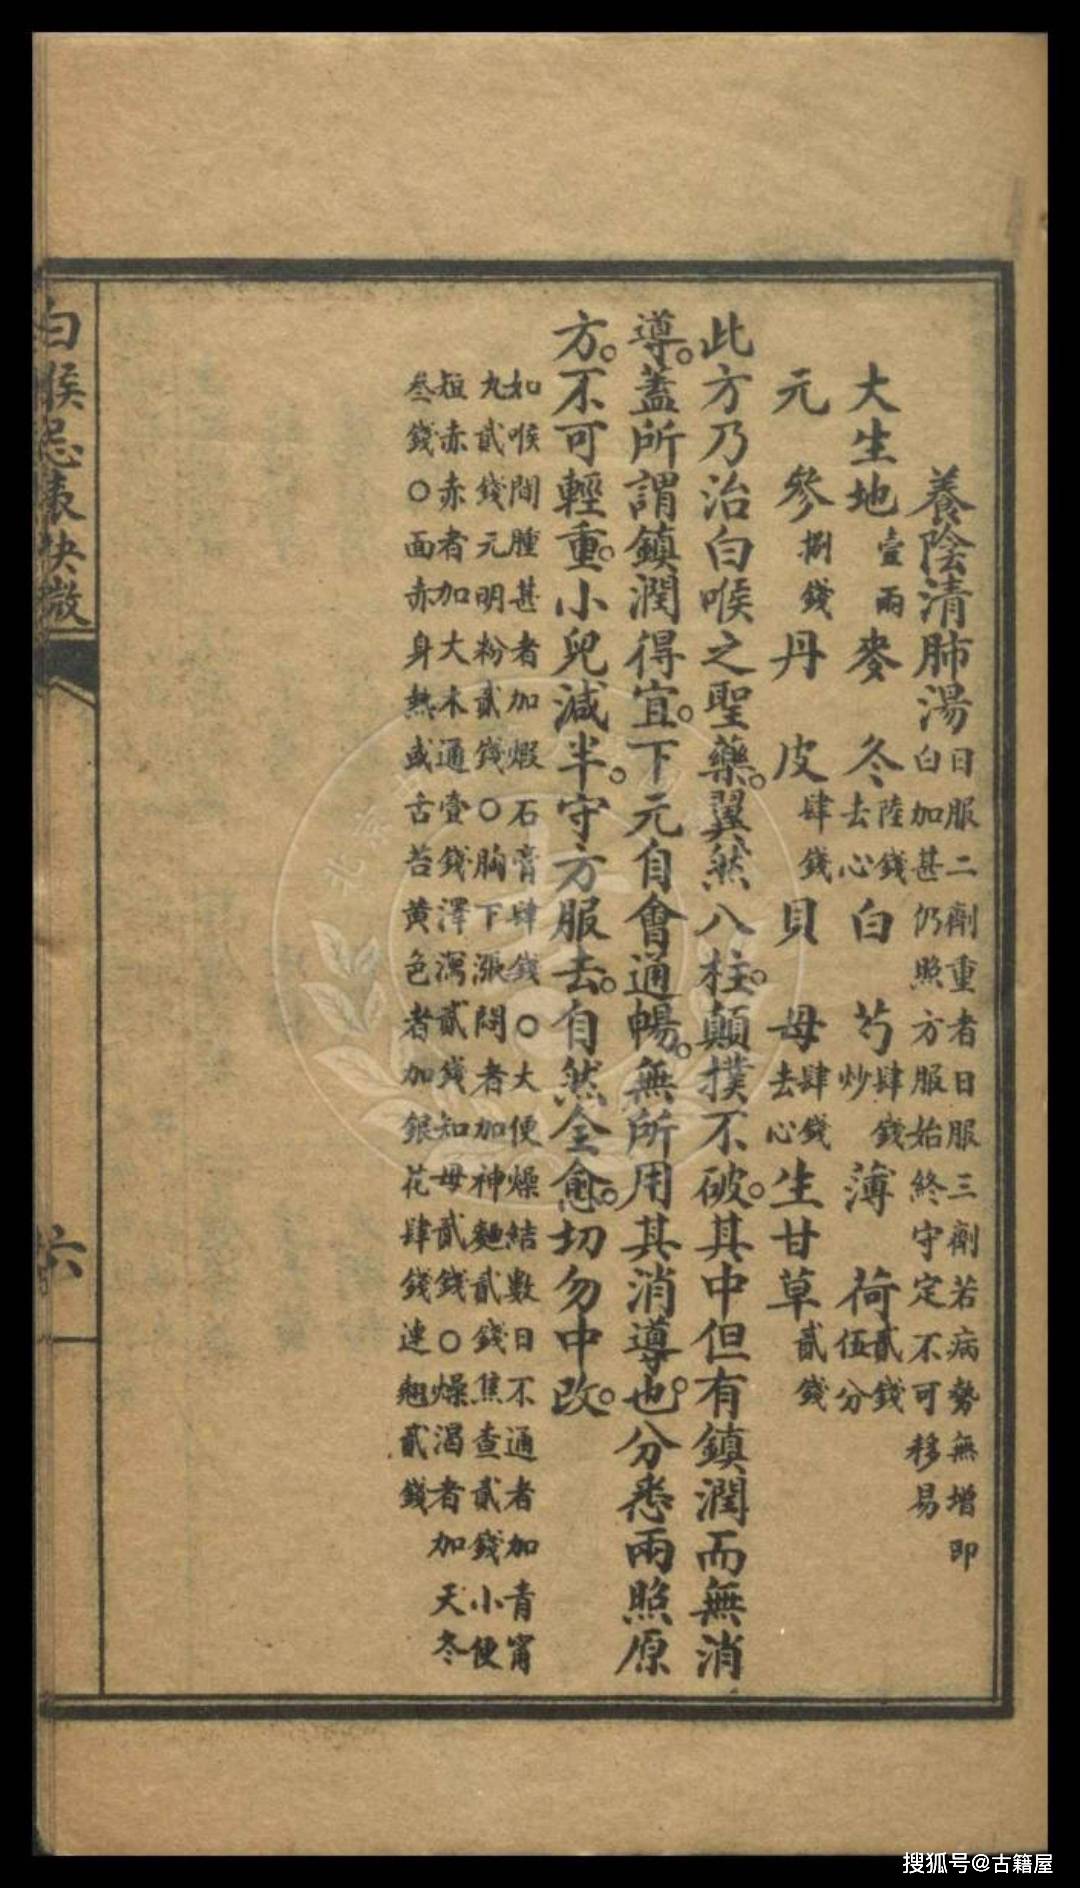 養陰清肺湯日服二劑重者日服三劑若病勢無增即
白加甚仍照方服始終守定不可移易
大生地壹兩麥冬陸錢去心白芍肆錢炒薄荷貳錢伍分
元參捌錢丹皮肆錢貝母肆錢去心生甘草貳錢
此方乃治白喉之聖藥。翼然八柱。顛撲不破。其中但有鎮潤而無消
導。蓋所謂鎮潤得宜。下元自會通暢。無所用其消導也。分悉兩照原
方。不可輕重。小兒減半。守方服去。自然全愈。切勿中改。
如喉間腫甚者加煆石膏肆錢○大便燥結數日不通者加青甯
丸貳錢元明粉貳錢○胸下漲悶者加神麯貳錢焦查貳錢小便
短赤赤者加大木通壹錢澤瀉貳錢知母貳錢○燥渴者加天冬
叁錢○面赤身熱或舌苔黄色者加銀花肆錢連翹貳錢
白喉忌表抉微
六
搜狐号@古籍屋